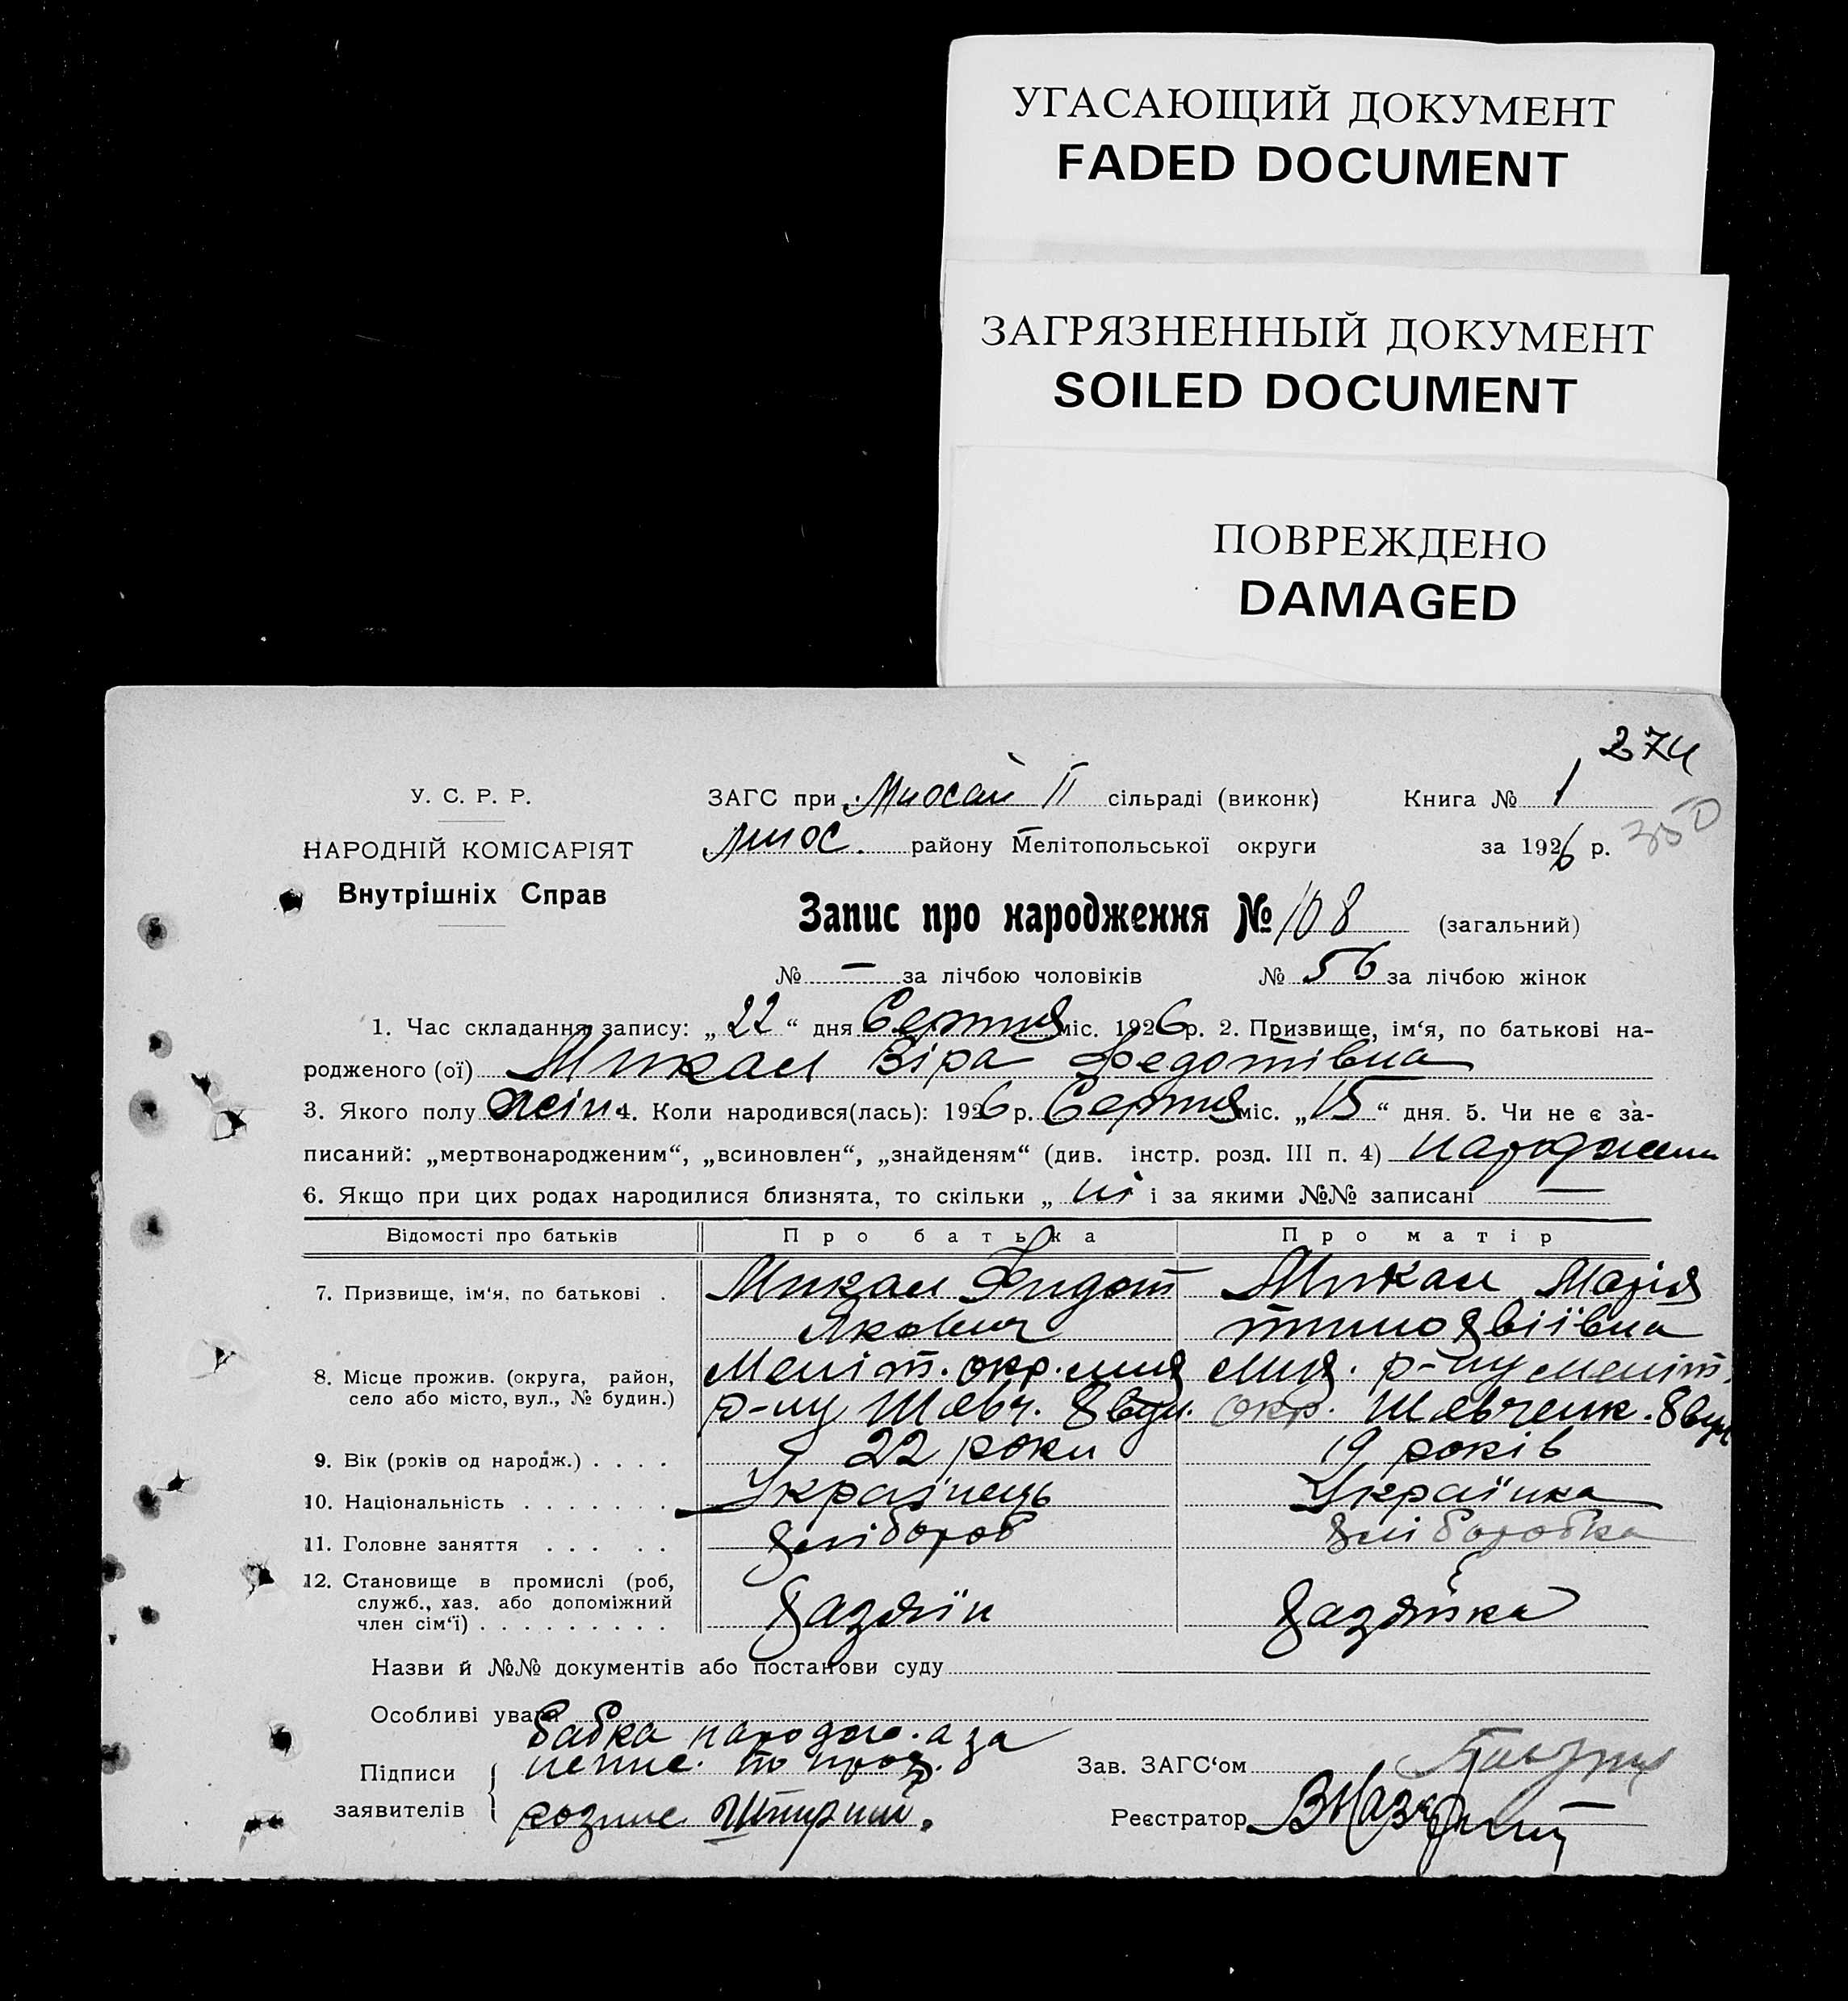 УГАСАЮЩИЙ ДОКУМЕНТ
FADED DOCUMENT
ЗАГРЯЗНЕННЫЙ ДОКУМЕНТ
SOILED DOCUMENT
ПОВРЕЖДЕНО
DAMAGED
274
У. С. Р. Р.
ЗАГС при II сільраді (виконк) Книга № 1
350
НАРОДНІЙ КОМІСАРІЯТ
району Мелітопольської округи за 1926 р.
Внутрішніх Справ
Запис про народження № 108 (загальний)
№ — за лічбою чоловіків № 56 за лічбою жінок
1. Час складання запису: „22“ дня Серпня міс. 1926 р. 2. Призвище, ім‘я, по батькові на-
родженого (ої) Микал Віра Федотівна
3. Якого полу жін. 4. Коли народився(лась): 1926 р. Серпня міс. „15“ дня. 5. Чи не є за-
писаний: „мертвонародженим“, „всиновлен“, „знайденям“ (див. інстр. розд. III п. 4)
6. Якщо при цих родах народилися близнята, то скільки „ ні і за якими №№ записані —
Відомості про батьків Про батька Про матір
7. Призвище, ім‘я, по батькові . Микал Хидот Микал Марія
Якович
8. Місце прожив. (округа, район, Меліт. окр. р-ну меліт.
село або місто, вул., № будин.) р-ну Шевч. окр. Шевченк.
9. Вік (років од народж.) . . . . 22 роки 19 років
10. Національність . . . . . . . Українець Українка
11. Головне заняття . . . . . хлібороб хліборобка
12. Становище в промислі (роб,
служб., хаз. або допоміжний
член сім‘ї) . . . . . . . . . хазяїн хазяйка
Назви й №№ документів або постанови суду
Особливі уваги
бабка а за
Підписи
Зав. ЗАГС‘ом
заявителів
Реєстратор